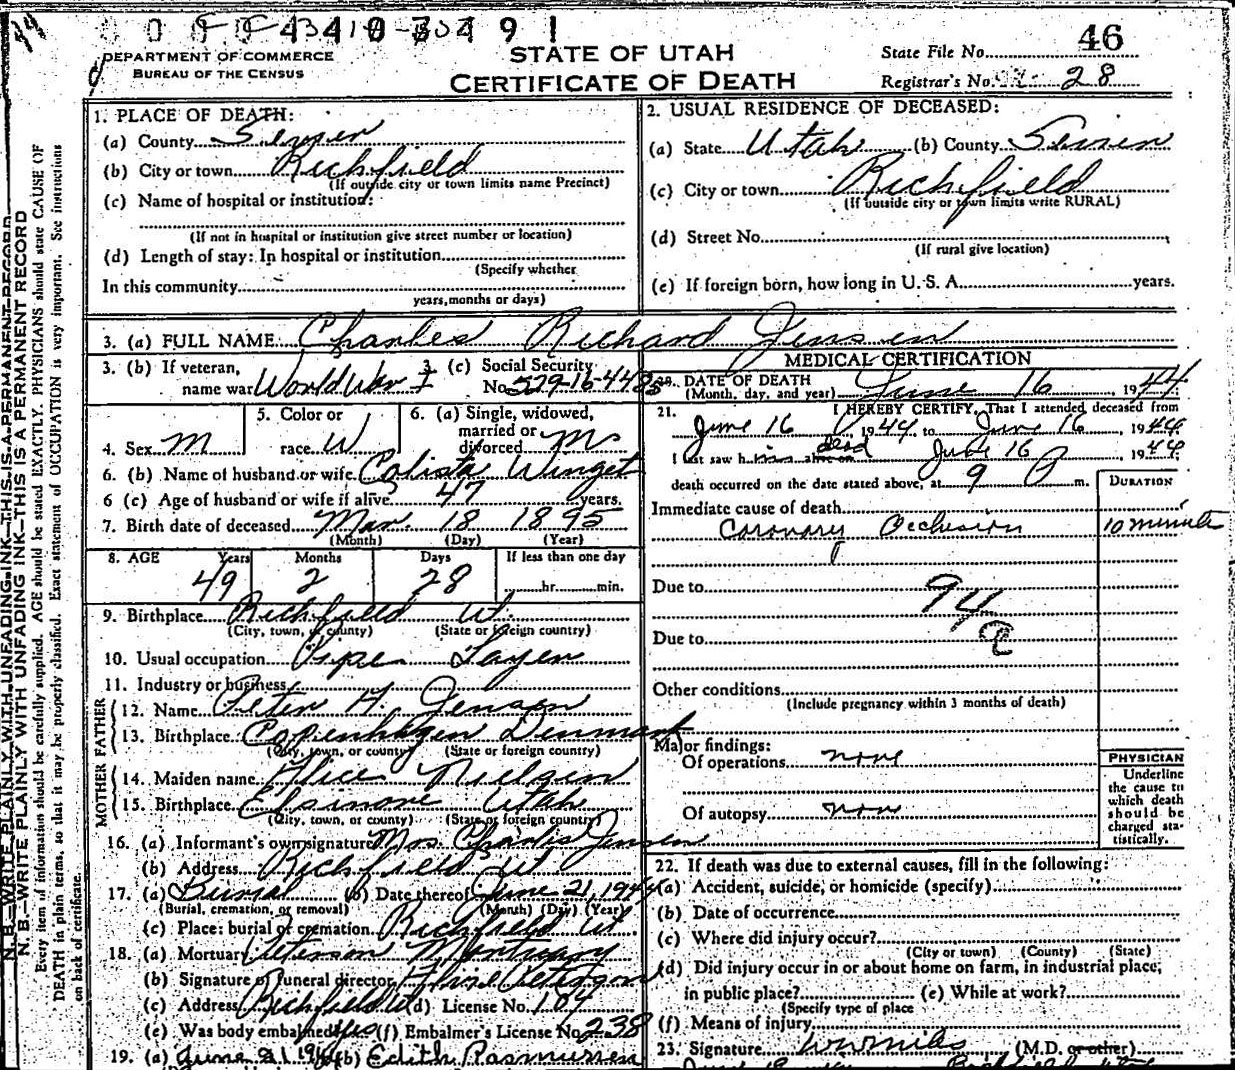 46
DEPARTMENT OF COMMERCE
BUREAU OF THE CENSUS
STATE OF UTAH
CERTIFICATE OF DEATH
State File No.
Registrar's No. 28
N. B.—WRITE PLAINLY WITH UNFADING INK—THIS IS A PERMANENT RECORD
N. B.—WRITE PLAINLY WITH UNFADING INK—THIS IS A PERMANENT RECORD
Every item of information should be carefully supplied. AGE should be stated EXACTLY. PHYSICIANS should state CAUSE OF
DEATH in plain terms, so that it may be properly classified. Exact statement of OCCUPATION is very important. See instructions
on back of certificate.
1. PLACE OF DEATH:
(a) County Sevier
(b) City or town Richfield
(If outside city or town limits name Precinct)
(c) Name of hospital or institution:
(If not in hospital or institution give street number or location)
(d) Length of stay: In hospital or institution
(Specify whether
In this community
years, months or days)
2. USUAL RESIDENCE OF DECEASED:
(a) State Utah (b) County Sevier
(c) City or town Richfield
(If outside city or town limits write RURAL)
(d) Street No.
(If rural give location)
(e) If foreign born, how long in U. S. A. years.
3. (a) FULL NAME Charles Richard Jensen
3. (b) If veteran, name war World War I
3 (c) Social Security No. 529-16-4485
4. Sex M
5. Color or race W
6. (a) Single, widowed, married or divorced
6. (b) Name of husband or wife Calista Winget
6 (c) Age of husband or wife if alive 47 years.
7. Birth date of deceased Mar. 18 1895
(Month) (Day) (Year)
8. AGE Years Months Days If less than one day
49 2 28 hr. min.
9. Birthplace Richfield Ut.
(City, town, or county) (State or foreign country)
10. Usual occupation Pipe Layer
11. Industry or business
FATHER
12. Name Peter H. Jensen
13. Birthplace Copenhagen Denmark
(City, town, or county) (State or foreign country)
MOTHER
14. Maiden name Alice Nielsen
15. Birthplace Elsinore Utah
(City, town, or county) (State or foreign country)
16. (a) Informant's own signature Mrs. Charles Jensen
(b) Address Richfield Ut
17. (a) Burial (b) Date thereof June 21, 1944
(Burial, cremation, or removal) (Month) (Day) (Year)
(c) Place: burial or cremation Richfield Ut.
18. (a) Mortuary Peterson Mortuary
(b) Signature of funeral director Peterson
(c) Address Richfield Ut (d) License No. 104
(e) Was body embalmed yes (f) Embalmer's License No. 238
19. (a) June 21 1944 (b) Edith Rasmussen
MEDICAL CERTIFICATION
20. DATE OF DEATH
(Month, day, and year) June 16 1944
21. I HEREBY CERTIFY, That I attended deceased from
June 16 1944 to June 16, 1944
I last saw him alive on dead June 16 1944
death occurred on the date stated above, at 9 P m.
DURATION
Immediate cause of death
Coronary Occlusion 10 minute
Due to
94
a
Due to
Other conditions
(Include pregnancy within 3 months of death)
Major findings:
Of operations none
Of autopsy none
PHYSICIAN
Underline
the cause to
which death
should be
charged sta-
tistically.
22. If death was due to external causes, fill in the following:
(a) Accident, suicide, or homicide (specify)
(b) Date of occurrence
(c) Where did injury occur?
(City or town) (County) (State)
(d) Did injury occur in or about home on farm, in industrial place,
in public place? (e) While at work?
(Specify type of place
(f) Means of injury
23. Signature (M.D. or other)